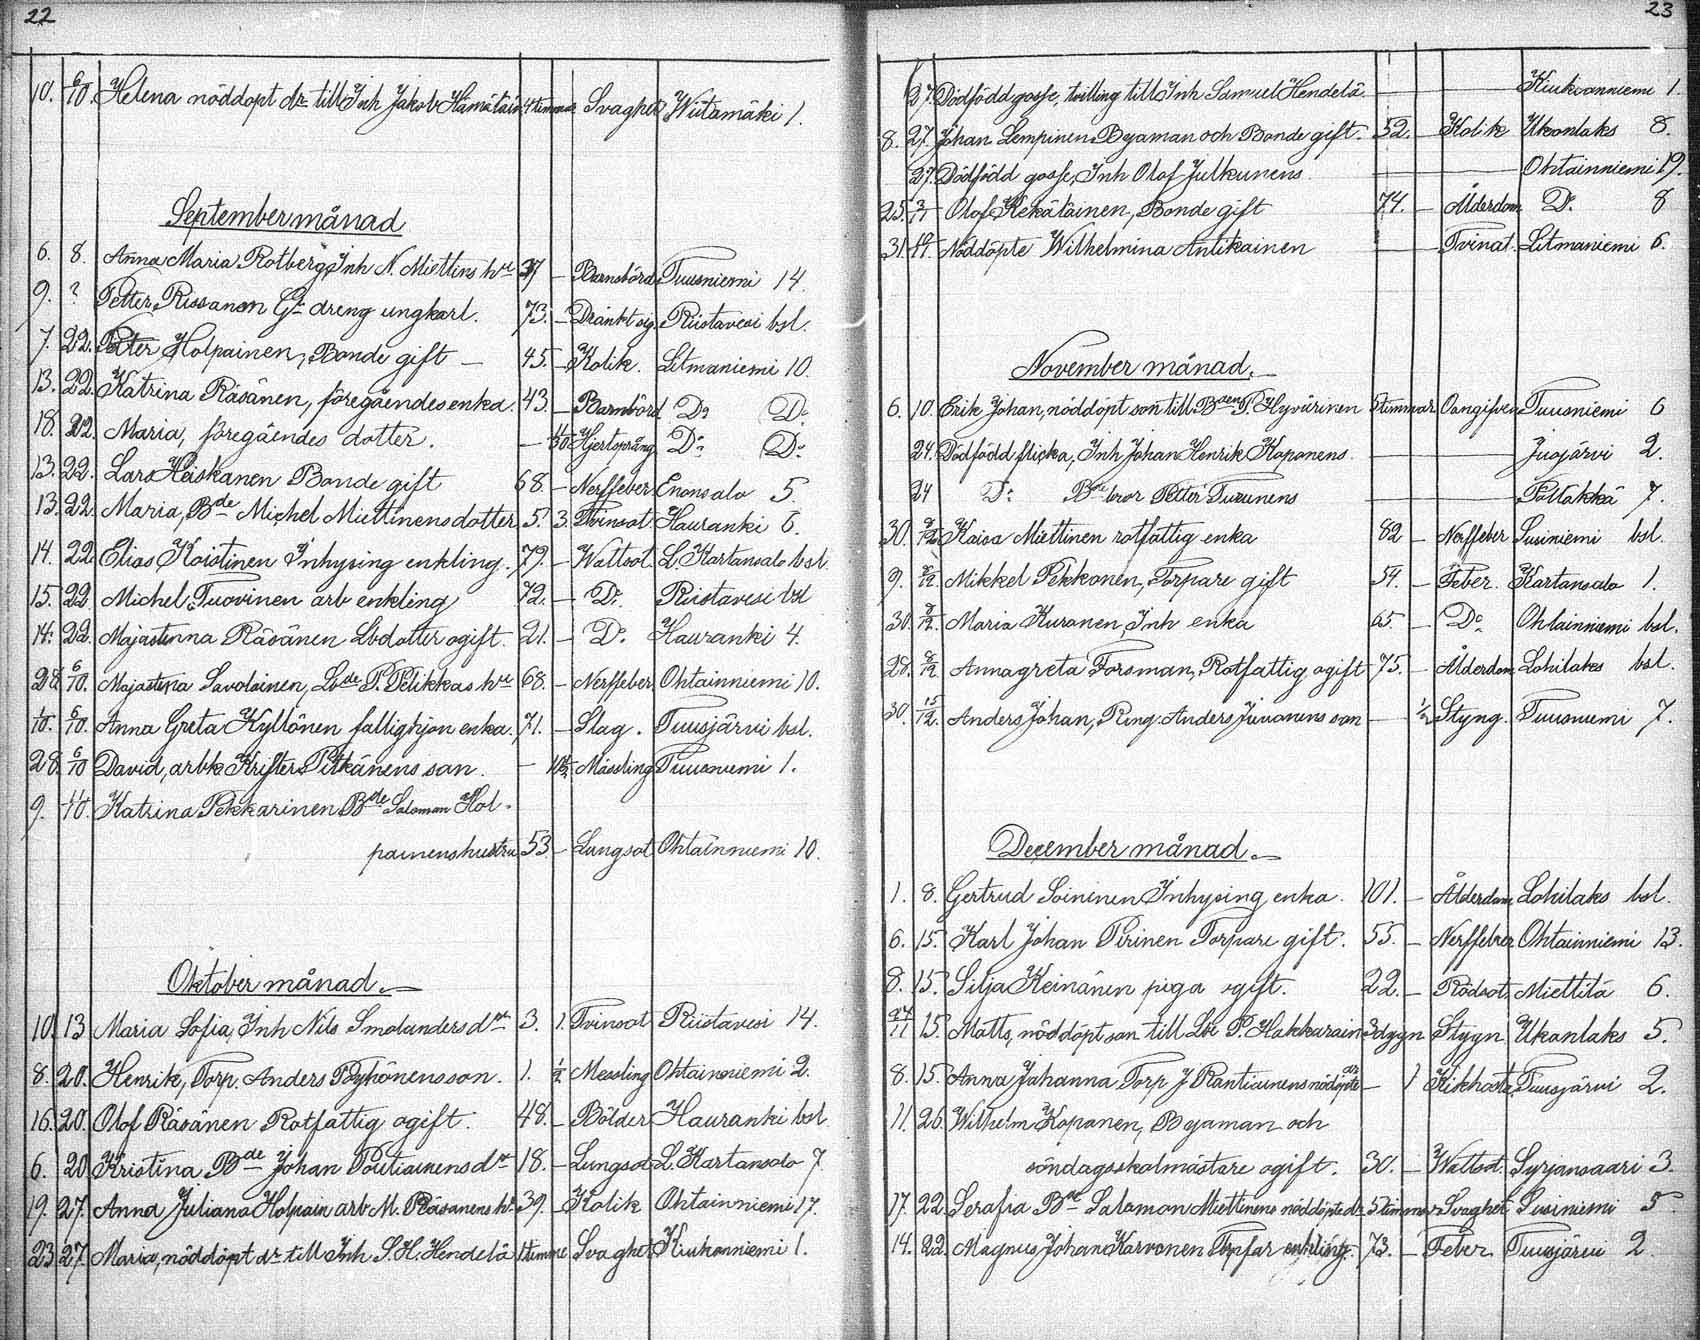 22
10. 6/10. Helena nöddöpt dr till Inh Jakob Hämäläin 4 timmar Svaghet Wiitamäki 1.
Septembermånad
6. 8. Anna Maria Rotberg, Inh N. Miettins hu 37 — Barnsbörd Tuusniemi 14.
9. ? Petter Rissanen Gl dreng ungkarl. 73. — Dränkt sig Riistavesi bsl.
7. 22. Petter Holpainen, Bonde gift — 45. — Kolik. Litmaniemi 10.
13. 22. Katrina Räsänen, föregåendes enka. 43. — Barnbörd Do Do
18. 22 Maria, föregåendes dotter. — Hjertsprång Do Do
13. 22. Lars Heiskanen Bonde gift 68. — Nerffeber Enonsalo 5.
13. 22. Maria, Bde Michel Miettinens dotter 5. 3. Tvinsot Hauranki 6.
14. 22 Elias Koistinen Inhysing enkling. 79. — Wattsot L. Kartansalo bsl.
15. 22 Michel Tuovinen arb enkling 72. — Do Riistavesi bsl
14. 22. Majastinna Räsänen Lbdotter ogift. 21. — Do Hauranki 4.
28. 6/10. Majastina Savolainen, Lbde P. Pelikkas hu 68. — Nerffeber Ohtainniemi 10.
10. 6/10. Anna Greta Kyllönen fattighjon enka. 71. — Slag. Tuusjärvi bsl.
28. 6/10 David, arbk Krister Pitkänens son. — Mässling Tuusniemi 1.
9. 11/10. Katrina Pekkarinen Bde Salomon Hol-
painens hustru 53. — Lungsot Ohtainniemi 10.
Oktober månad.
10. 13 Maria Sofia, Inh Nils Smolanders dr 3. 1. Tvinsot Riistavesi 14.
8. 20. Henrik, Torp. Anders Ryhönens son. 1. 1/2 Messling Ohtainniemi 2.
16. 20. Olof Räsänen Rotfattig ogift. 48. — Bölder Hauranki bsl
6. 20 Kristina Bde Johan Poutiainens dr 18. — Lungsot L. Kartansalo 7
19. 27. Anna Juliana Holpain arb M. Räsänens hu 39. — Kolik Ohtainniemi 17.
23 27. Maria, nöddöpt dr till Inh S. H. Hendelä 1 timme Svaghet Kiukonniemi 1.
23
27. Dödfödd gosse, tvilling till Inh Samuel Hendelä. — Kiukoanniemi 1.
8. 27. Johan Lempinen Byaman och Bonde gift. 52. — Kolik Ukonlaks 8.
27. Dödfödd gosse, Inh Olof Julkunens — Ohtainniemi 19.
25. 3/11 Olof Kekäläinen, Bonde gift 74. — Ålderdom Do 8
31. Nöddöpte Wilhelmina Antikainen — Tvinat. Litmaniemi 6.
November månad.
6. 10. Erik Johan, nöddöpt son till Bden P. Hyvärinen 5 timmar Oangifven Tuusniemi 6
24. Dödfödd flicka, Inh Johan Henrik Koponens — Jusjärvi 2.
24 Do Bde bror Petter Turunens — 7.
30. Kaisa Miettinen rotfattig enka 82 — Nerffeber Susiniemi bsl.
9. Mikkel Pekkonen, Torpare gift 54. — Feber. Kartansalo 1.
30. Maria Kuronen, Inh enka 65. — Do Ohtainniemi bsl.
28. 8/12 Annagreta Forsman, Rotfattig ogift 75. — Ålderdom Lohilaks bsl.
30. 15/12. Anders Johan, Ring. Anders Juvonens son — 1/2 Styng. Tuusniemi 7.
December månad.
1. 8. Gertrud Soininen Inhysing enka. 101. — Ålderdom Lohilaks bsl.
6. 15. Karl Johan Pirinen Torpare gift. 55. — Nerffeber Ohtainniemi 13.
8. 15. Silja Keinänen piga ogift. 22. — Rödsot Miettilä 6.
27/11 15. Matts, nöddöpt son till Lbe P. Hakkarain 3 dygn Stygn Ukonlaks 5.
8. 15. Anna Johanna Torp J Rantiainens nöddöpte dr — 1 Kikhosta Tuusjärvi 2.
11. 26. Wilhelm Koponen, Byaman och
söndagsskolmästare ogift. 30. — Wattsot. Syrjänsaari 3.
17. 22. Serafia Bde Salomon Miettinens nöddöpte dr 5 timmar Svaghet Susiniemi 5
14. 22. Magnus Johan Karvonen Torpfar enkling. 73. — Feber. Tuusjärvi 2